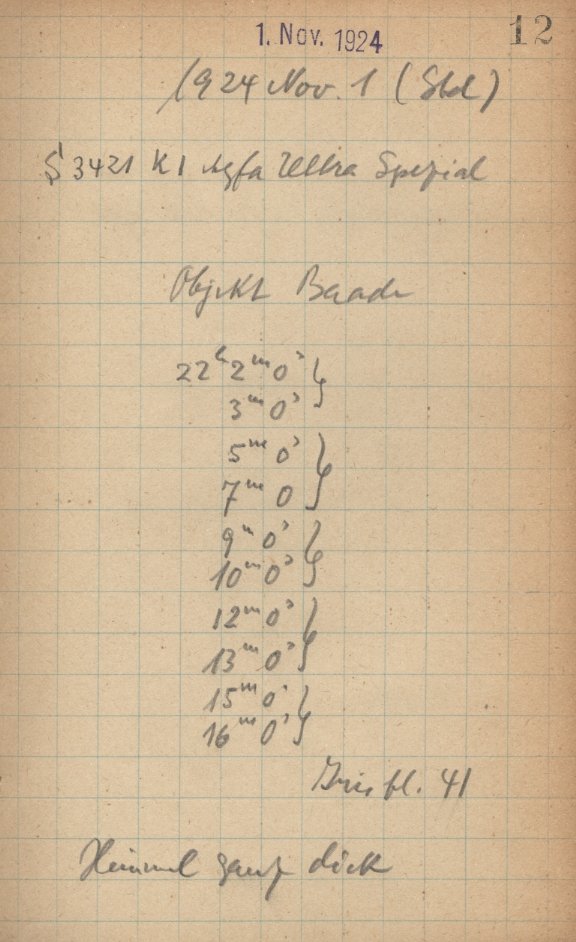 12
1. Nov. 1924
1924 Nov. 1 (Std)
S 3421 Kl Agfa Ultra Spezial
Objekt Baade
22ʰ 2ᵐ 0ˢ }
3ᵐ 0ˢ
5ᵐ 0ˢ }
7ᵐ 0
9ᵐ 0ˢ }
10ᵐ 0ˢ
12ᵐ 0ˢ }
13ᵐ 0ˢ
15ᵐ 0ˢ }
16ᵐ 0ˢ
Irisbl. 41
Himmel ganz dick